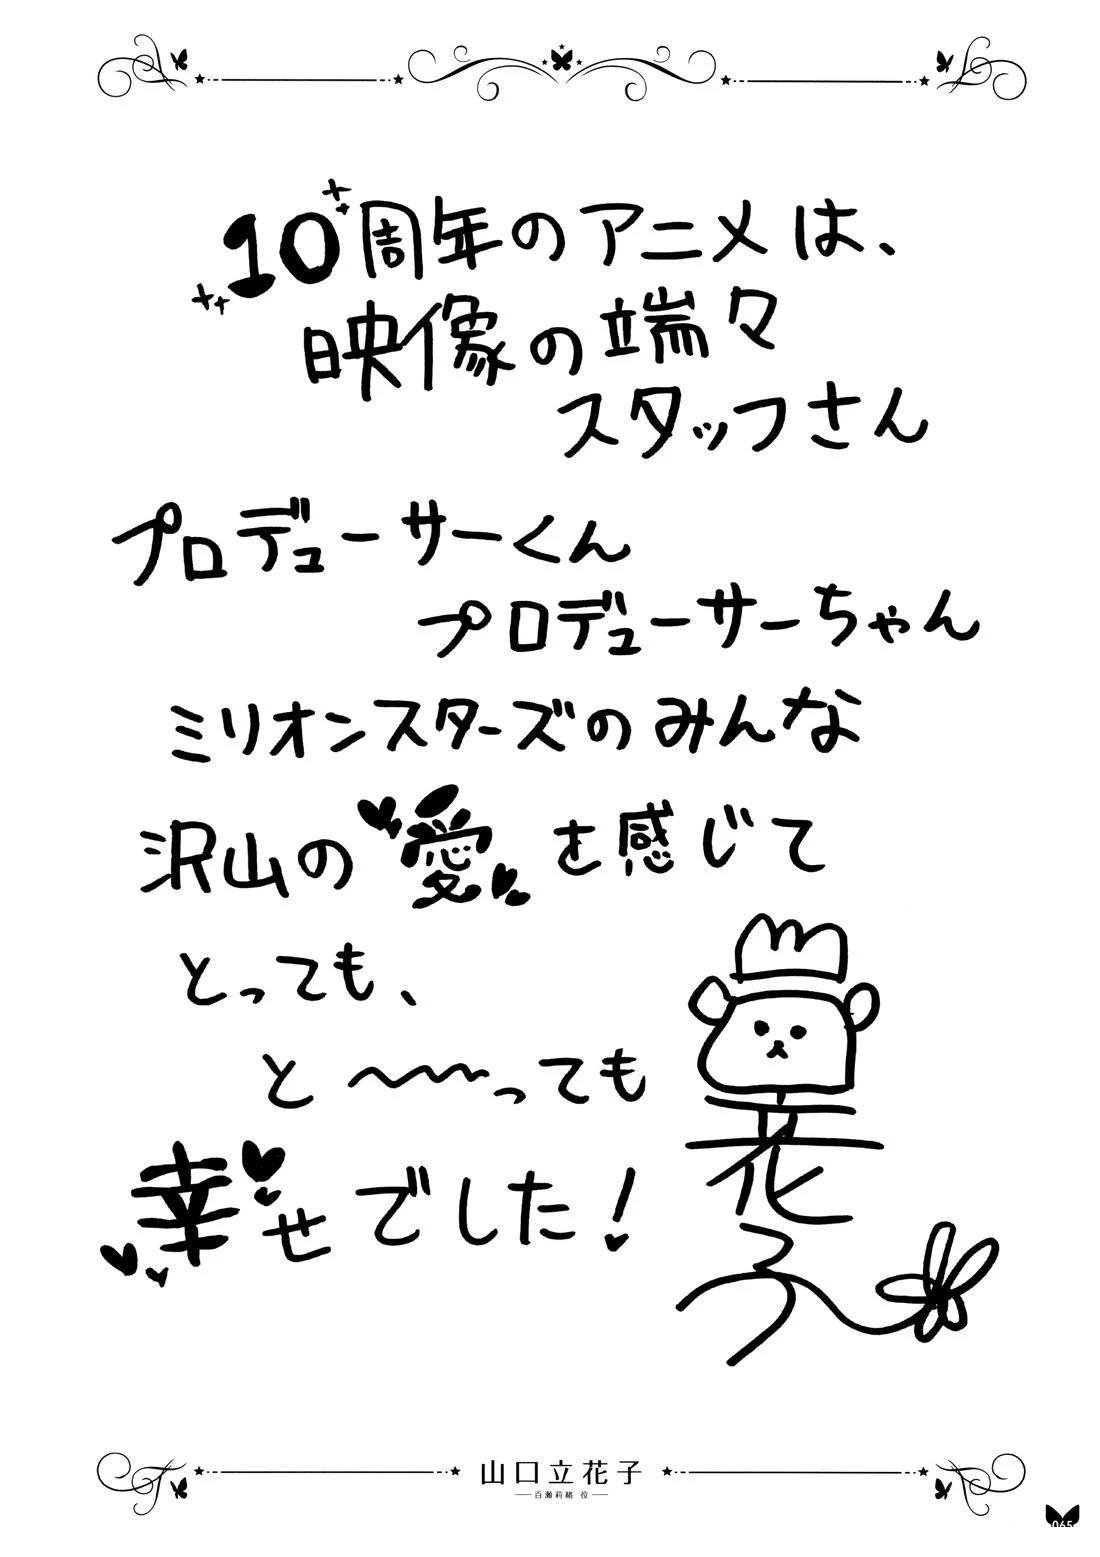 10周年のアニメは、
映像の端々
スタッフさん
プロデューサーくん
プロデューサーちゃん
ミリオンスターズのみんな
沢山の愛を感じて
とっても、
と〜〜〜っても
幸せでした!
立花子
山口立花子
百瀬莉緒 役
065